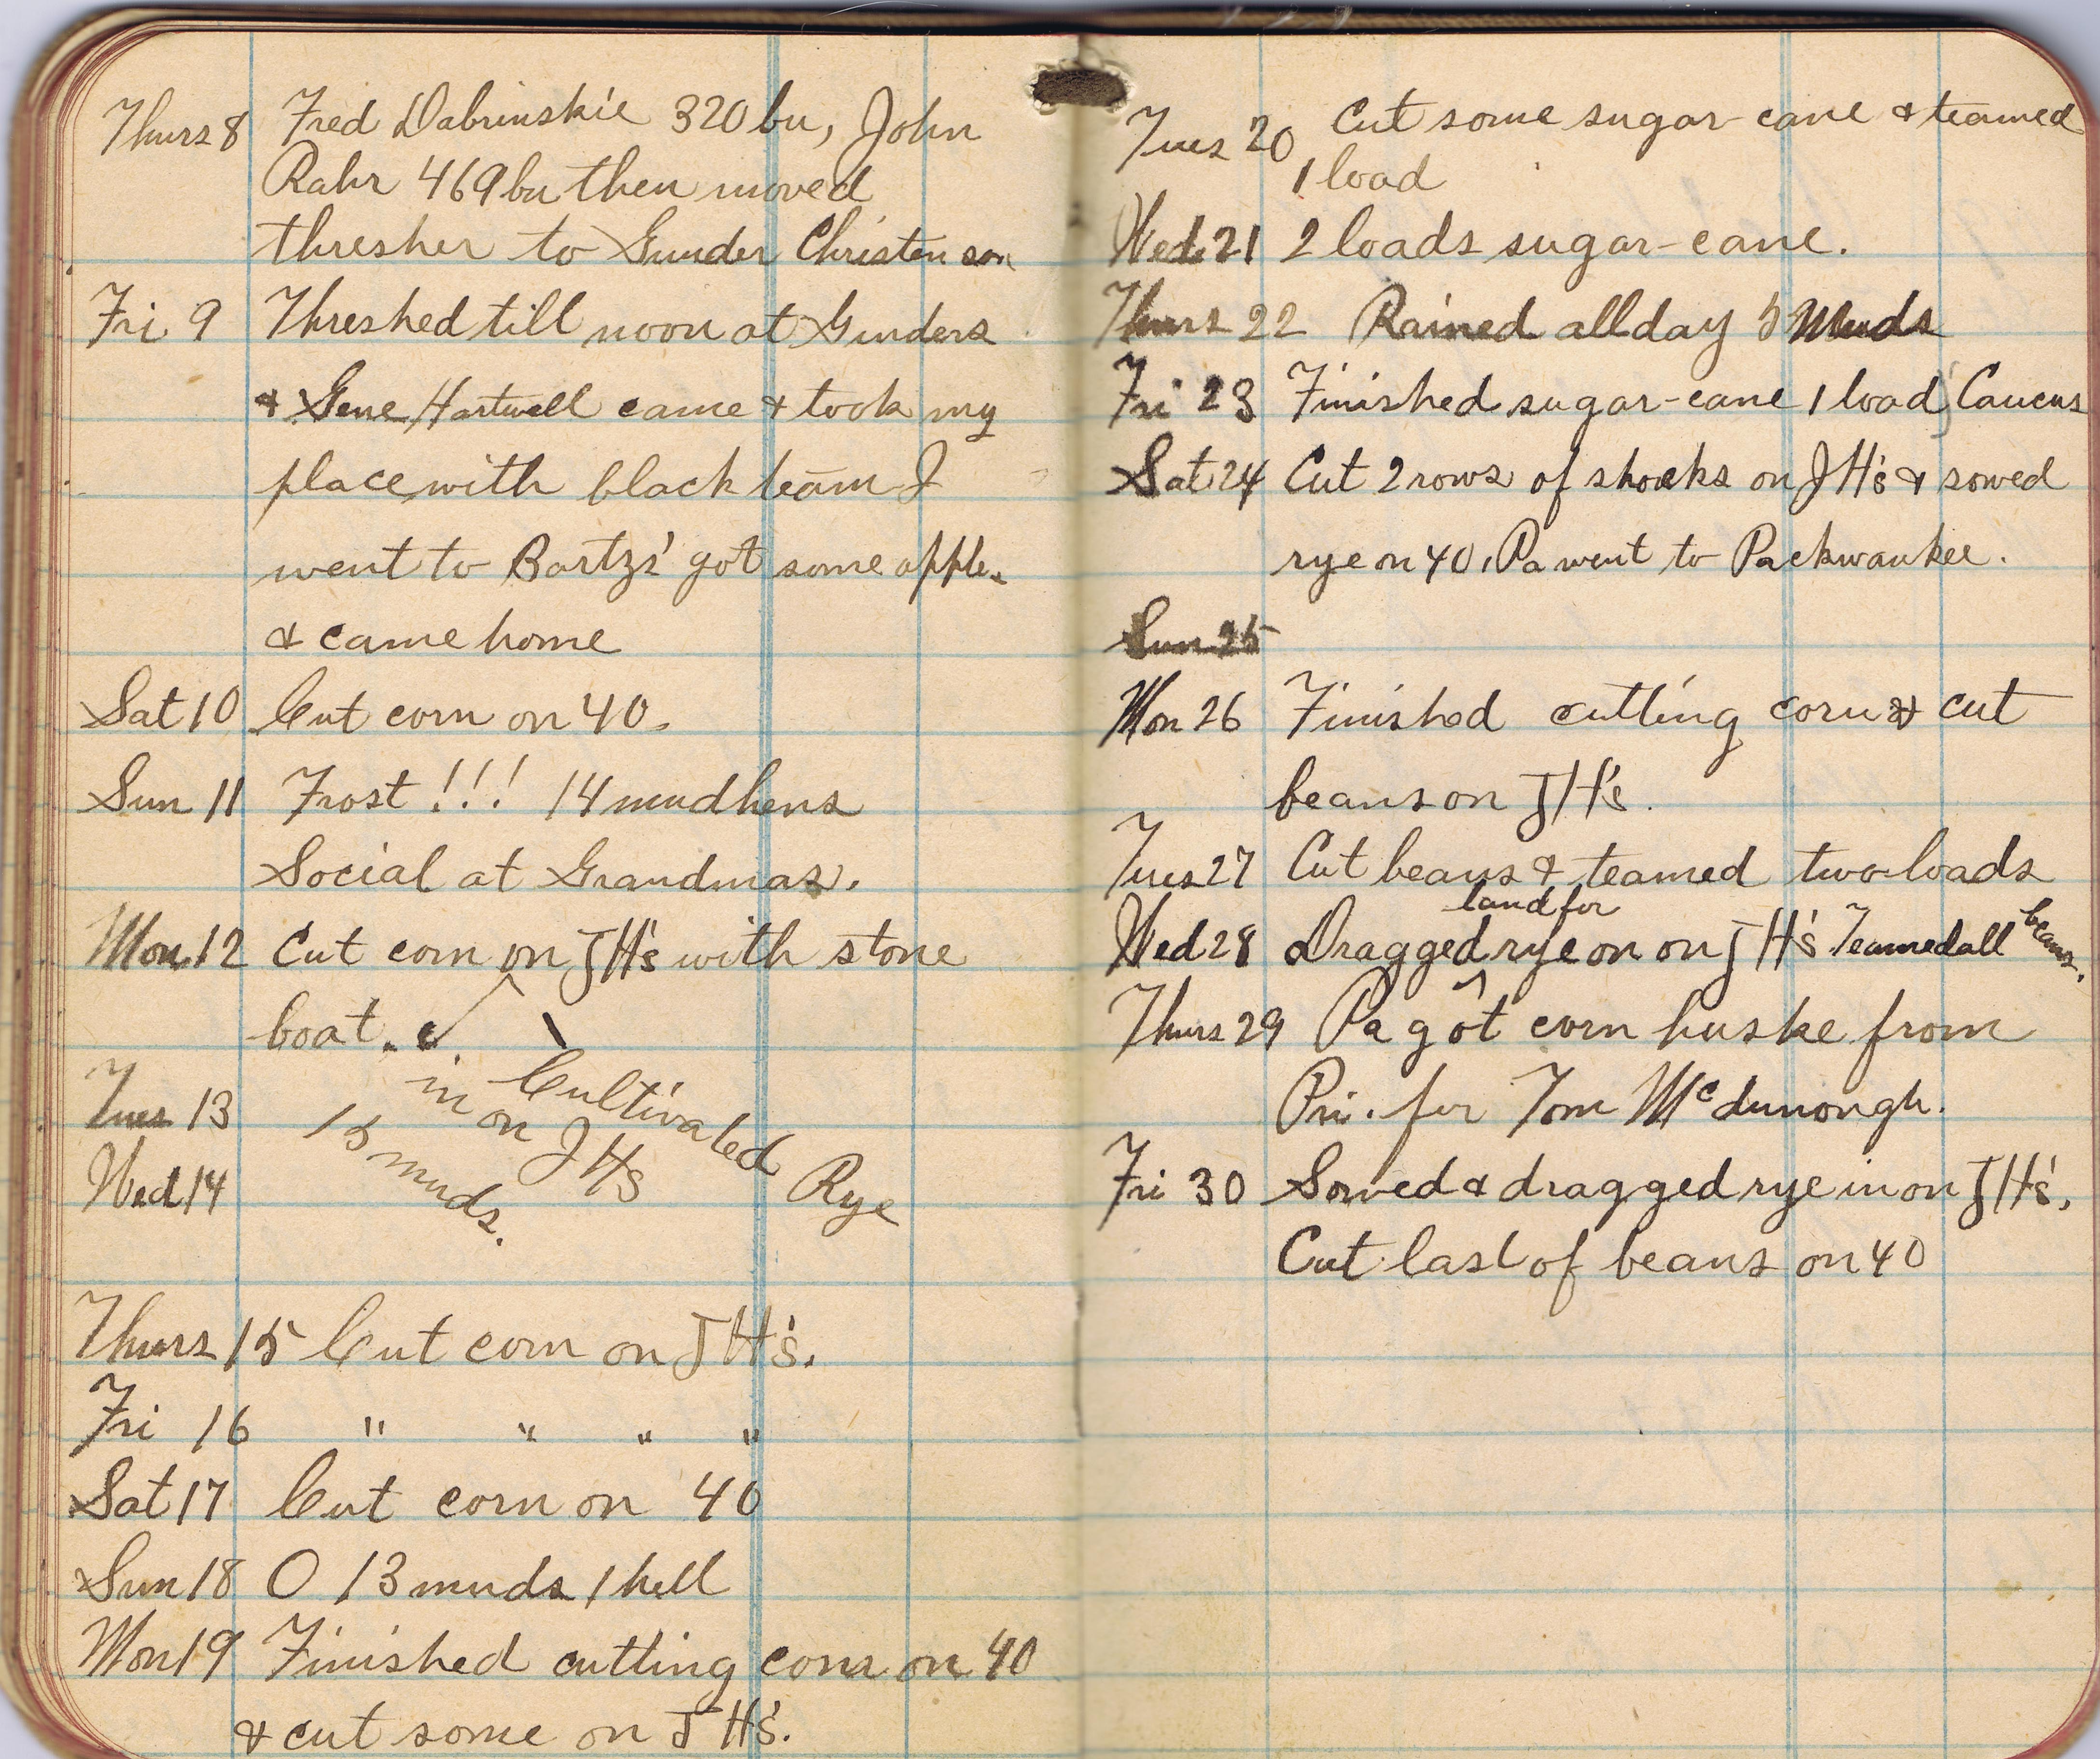 Thurs 8 Fred Dabrinskie 320 bu, John
Rahr 469 bu then moved
thresher to Gunder Christenson
Fri 9 Threshed till noon at Gunders
& Gene Hartwell came & took my
place with black team I
went to Bartzs' got some apples
& came home
Sat 10 Cut corn on 40.
Sun 11 Frost !!! 14 mudhens
Social at Grandmas.
Mon 12 Cut corn on JH's with stone
boat.
Tues 13 in Cultivated Rye
on JHs
Wed 14 15 muds.
Thurs 15 Cut corn on JH's.
Fri 16 " " " "
Sat 17 Cut corn on 40
Sun 18 O 13 muds 1 hell
Mon 19 Finished cutting corn on 40
& cut some on JH's.
Tues 20 Cut some sugar-cane & teamed
1 load
Wed 21 2 loads sugar-cane.
Thurs 22 Rained all day 5 Muds
Fri 23 Finished sugar-cane 1 load, Caucus
Sat 24 Cut 2 rows of shocks on JH's & sowed
rye on 40. Pa went to Packwaukee.
Sun 25
Mon 26 Finished cutting corn & cut
beans on JH's.
Tues 27 Cut beans & teamed two loads
land for
Wed 28 Dragged rye on on JH's Teamed all beans.
Thurs 29 Pa got corn huske from
Pri. for Tom McDunongh.
Fri 30 Sowed & dragged rye in on JH's.
Cut last of beans on 40